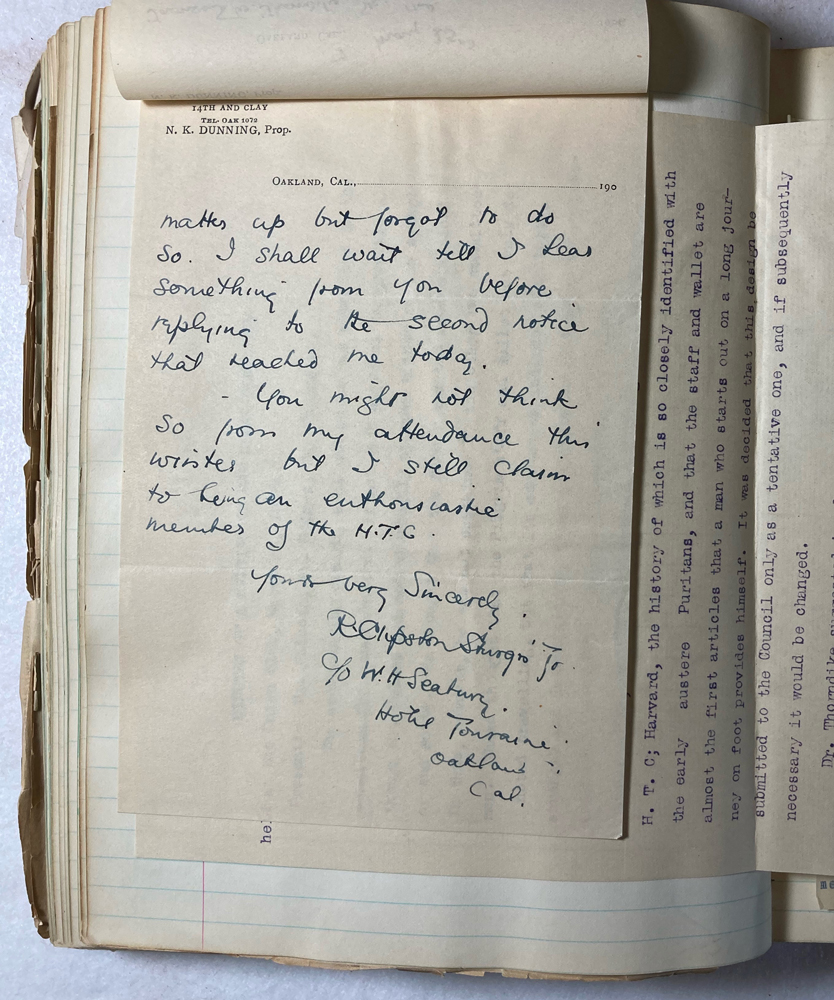 14TH AND CLAY
TEL. OAK 1072
N. K. DUNNING, Prop.
OAKLAND, CAL., 190
matter up but forgot to do
so. I shall wait till I hear
something from you before
replying to the second notice
that reached me today.
- You might not think
so from my attendance this
winter but I still claim
to being an enthousiastic
member of the H.T.C.
Yours very Sincerely,
R. Clipston Sturgis Jr
c/o W. H Seabury.
Hotel Touraine.
Oakland.
Cal.
hel
H. T. C; Harvard, the history of which is so closely identified with
the early austere Puritans, and that the staff and wallet are
almost the first articles that a man who starts out on a long jour-
ney on foot provides himself. It was decided that this design be
submitted to the Council only as a tentative one, and if subsequently
necessary it would be changed.
Dr. Thorndike